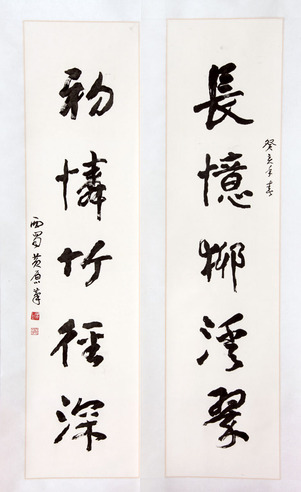 長憶柳溪翠
癸亥年春
初憐竹徑深
西蜀黄原